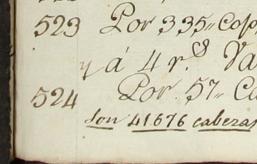 523 Por 335,, Cop
y á 4 r.s Va
524 Por 57,, Ca
son 41676 cabezas